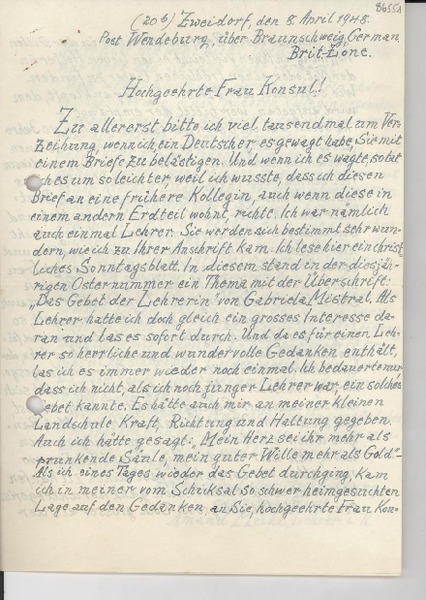 86551
(20b) Zweidorf, den 8. April 1948.
Post Wendeburg, über Braunschweig, German
Brit-Zone.
Hochgeehrte Frau Konsul!
Zu allererst bitte ich viel, tausendmal um Ver-
zeihung, wenn ich, ein Deutscher, es gewagt habe, Sie mit
einem Briefe zu belästigen. Und wenn ich es wagte, so tat
ich es um so leichter, weil ich wusste, dass ich diesen
Brief an eine frühere Kollegin, auch wenn diese in
einem andern Erdteil wohnt, richte. Ich war nämlich
auch einmal Lehrer. Sie werden sich bestimmt sehr wun-
dern, wie ich zu Ihrer Anschrift kam. Ich lese hier ein christ-
liches Sonntagsblatt. In diesem stand in der diesjäh-
rigen Osternummer ein Thema mit der Überschrift:
"Das Gebet der Lehrerin" von Gabriela Mistral. Als
Lehrer hatte ich doch gleich ein grosses Interesse da-
ran und las es sofort durch. Und da es für einen Leh-
rer so herrliche und wundervolle Gedanken enthält,
las ich es immer wieder noch einmal. Ich bedauerte nur
dass ich nicht, als ich noch junger Lehrer war, ein solches
Gebet kannte. Es hätte auch mir an meiner kleinen
Landschule Kraft, Richtung und Haltung gegeben.
Auch ich hätte gesagt: "Mein Herz sei ihr mehr als
prunkende Säule, mein guter Wille mehr als Gold"-
Als ich eines Tages wieder das Gebet durchging, kam
ich in meiner vom Schicksal so schwer heimgesuchten
Lage auf den Gedanken, an Sie, hochgeehrte Frau Kon-